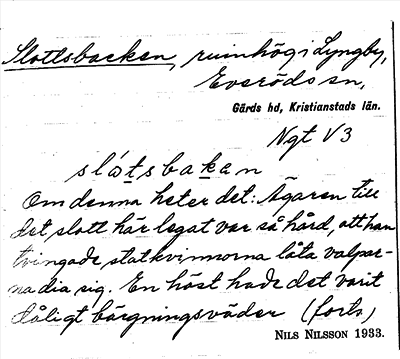 Slottsbacken, ruinhög i Lyngby,
Everöds sn,
Gärds hd, Kristianstads län.
Ngt V 3
slòtsbakan
Om denna heter det: Ägaren till
det slott här legat var så hård, att han
tvingade statkvinnorna låta valpar-
na dia sig. En höst hade det varit
dåligt bärgningsväder (forts)
NILS NILSSON 1933.